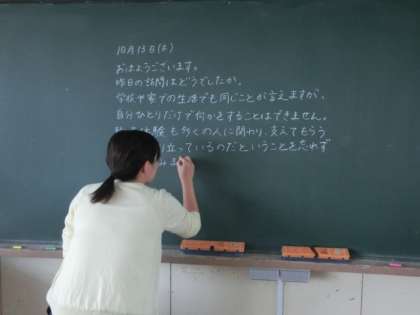 10月13日(木)
おはようございます。
昨日の訪問はどうでしたか。
学校や家での生活でも同じことが言えますが、
自分ひとりだけで何かをすることはできません。
体験も多くの人に関わり、支えてもらう
り立っているのだということを忘れず